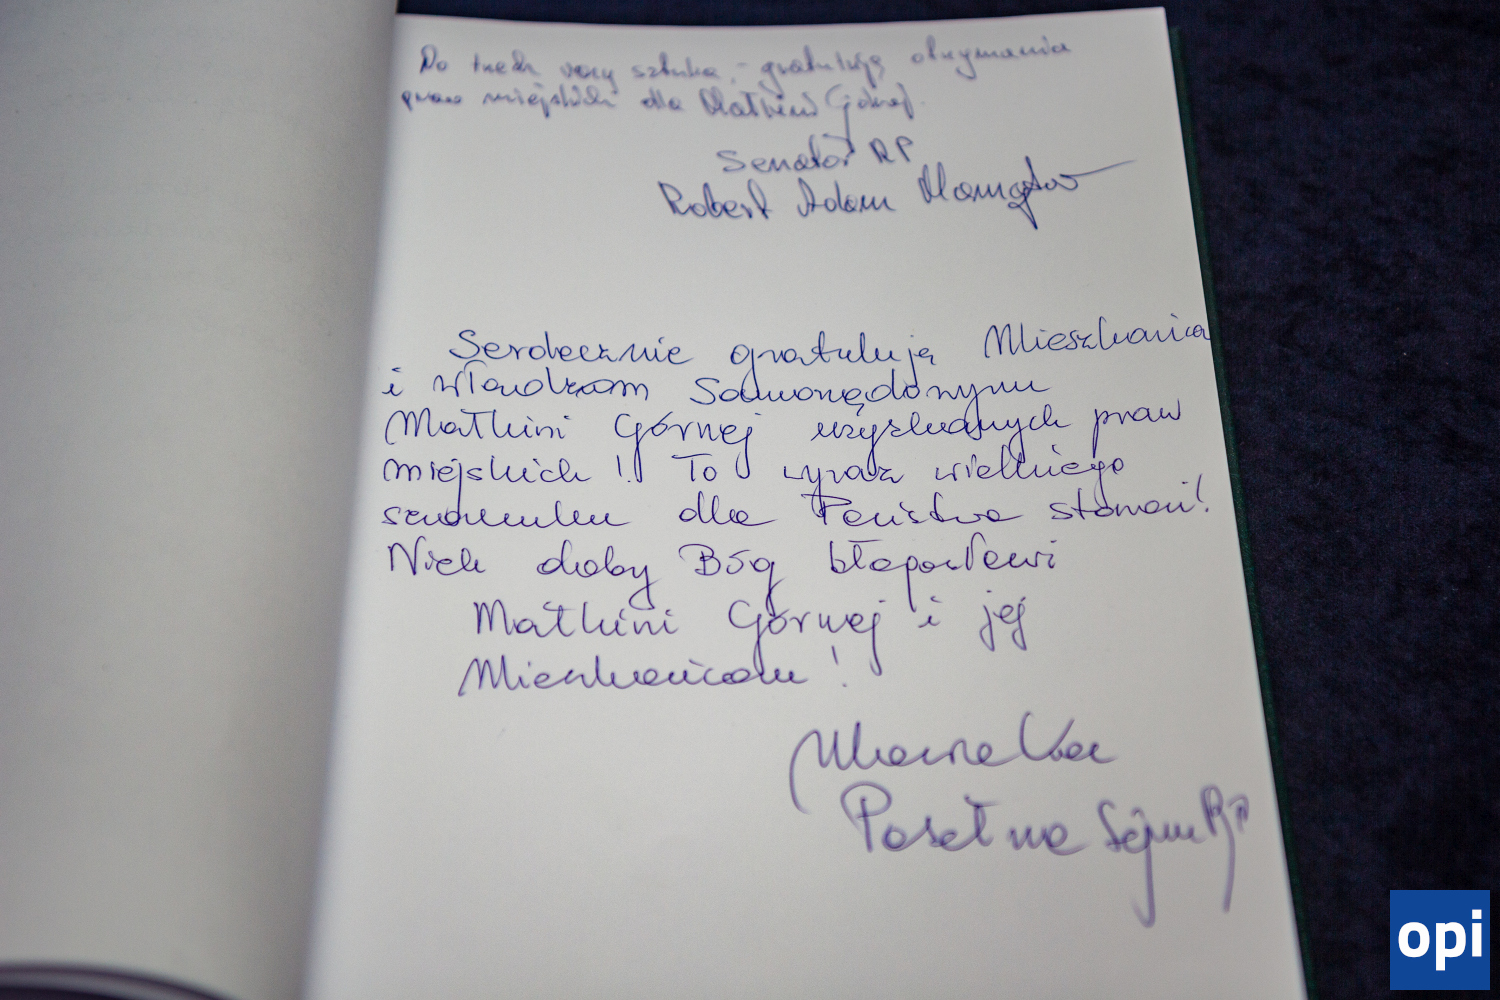 Do trzech razy sztuka, - gratuluję otrzymania
praw miejskich dla Małkini Górnej.
Senator RP
Robert Adam Mamątow
Serdecznie gratuluję Mieszkańcom
i władzom Samorządowym
Małkini Górnej uzyskanych praw
miejskich! To wyraz wielkiego
szacunku dla Państwa starań!
Niech dobry Bóg błogosławi
Małkini Górnej i jej
Mieszkańcom!
Poseł na Sejm RP
opi